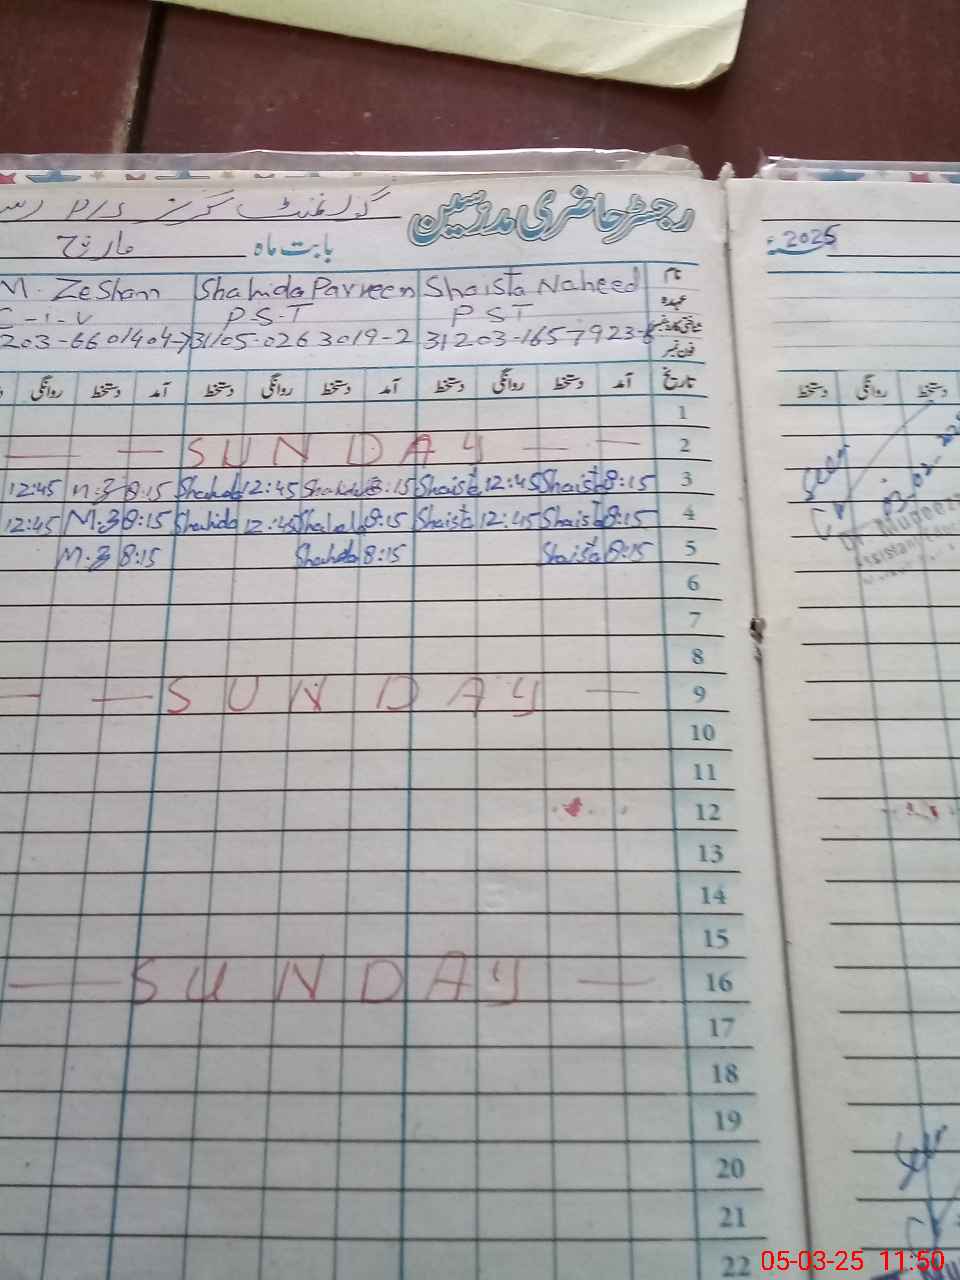 رجسٹر حاضری مدرسین
گورنمنٹ گرلز P/S
بابت ماہ مارچ
2025
نام Shaista Naheed Shahida Parveen M. Zeshan
عہدہ PST P.S.T C-I-V
شناختی کارڈ نمبر 31203-1657923-8 31105-0263019-2 203-6601404-7
فون نمبر
تاریخ آمد دستخط روانگی دستخط آمد دستخط روانگی دستخط آمد دستخط روانگی
دستخط روانگی دستخط
1
2 SUNDAY
3 8:15 Shaista 12:45 Shaista 8:15 Shahida 12:45 Shahida 8:15 M.Z 12:45
4 8:15 Shaista 12:45 Shaista 8:15 Shahida 12:45 Shahida 8:15 M.Z 12:45
5 8:15 Shaista 8:15 Shahida 8:15 M.Z
6
7
8
9 SUNDAY
10
11
12
13
14
15
16 SUNDAY
17
18
19
20
21
22
Seen
05-03-25 11:50